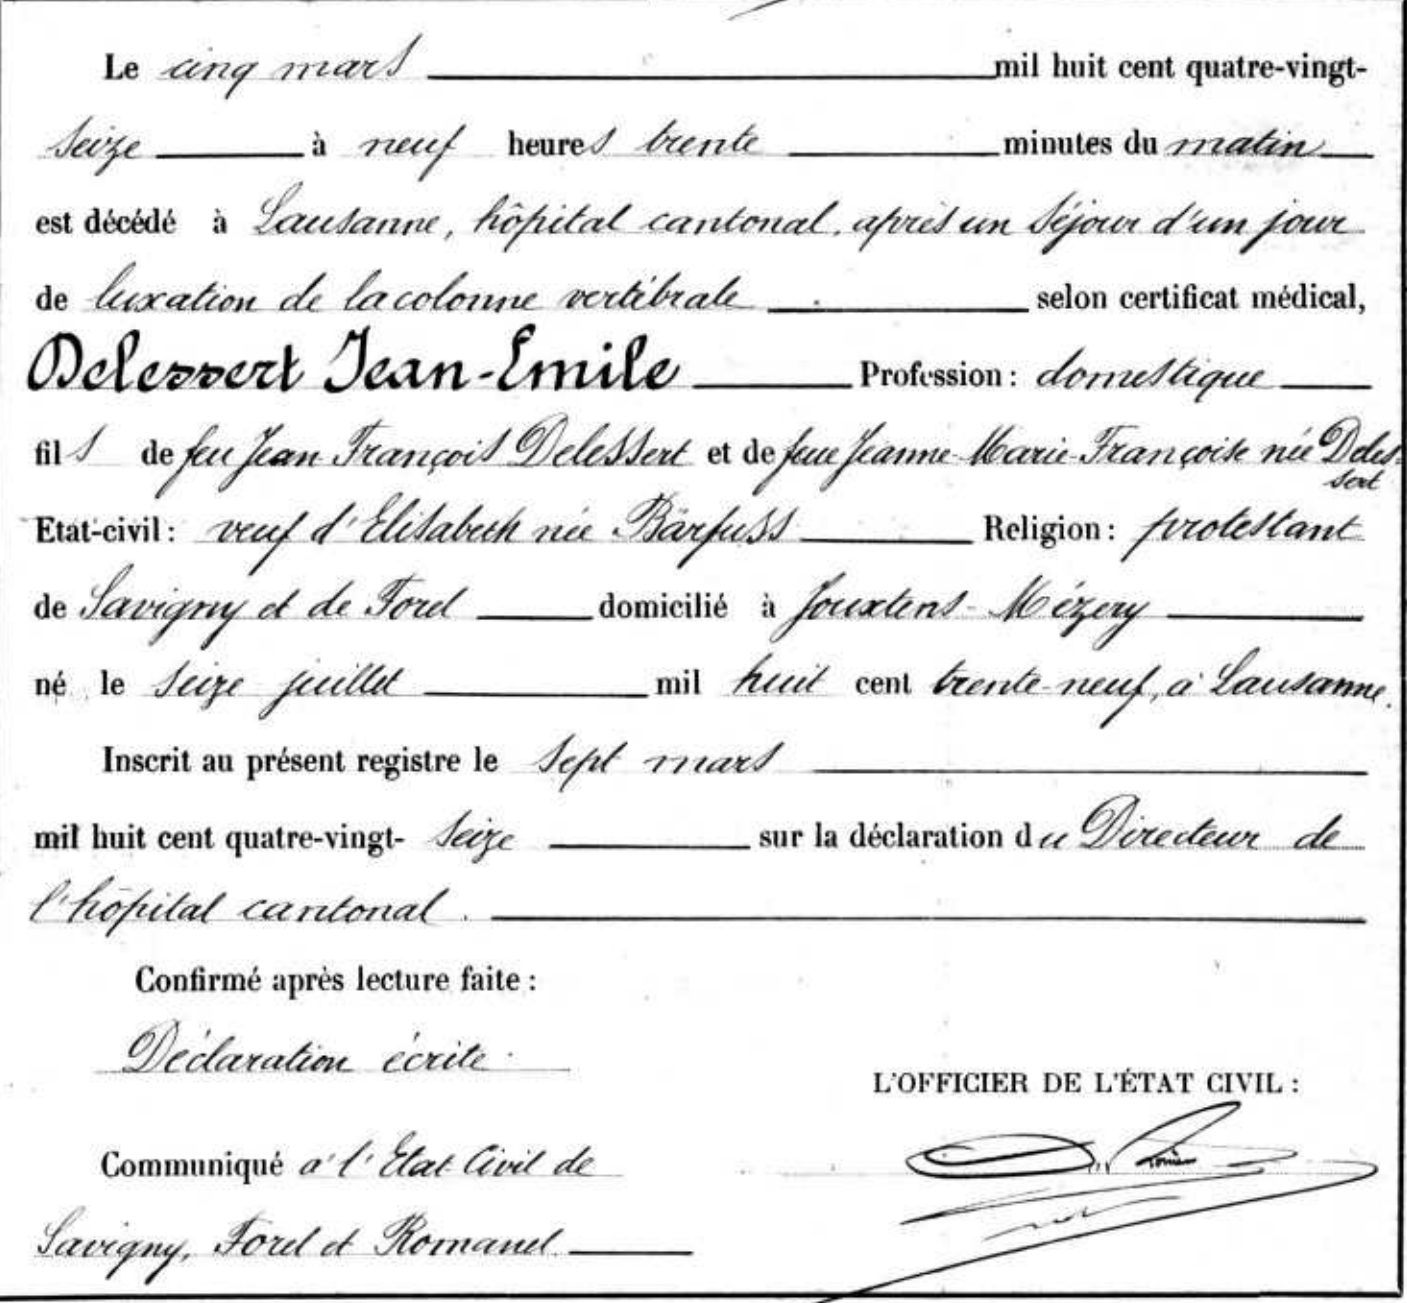 Le cinq mars mil huit cent quatre-vingt-
seize à neuf heures trente minutes du matin
est décédé à Lausanne, hôpital cantonal, après un séjour d'un jour
de luxation de la colonne vertébrale selon certificat médical,
Delessert Jean-Emile Profession : domestique
fils de feu Jean François Delessert et de feue Jeanne-Marie-Françoise née Deles-
sert
Etat-civil : veuf d'Elisabeth née Bärfuss Religion : protestant
de Savigny et de Forel domicilié à Jouxtens-Mézery
né le seize juillet mil huit cent trente-neuf, à Lausanne.
Inscrit au présent registre le sept mars
mil huit cent quatre-vingt-seize sur la déclaration du Directeur de
l'hôpital cantonal.
Confirmé après lecture faite :
Déclaration écrite.
L'OFFICIER DE L'ÉTAT CIVIL :
Communiqué à l'Etat-Civil de
Savigny, Forel et Romanel